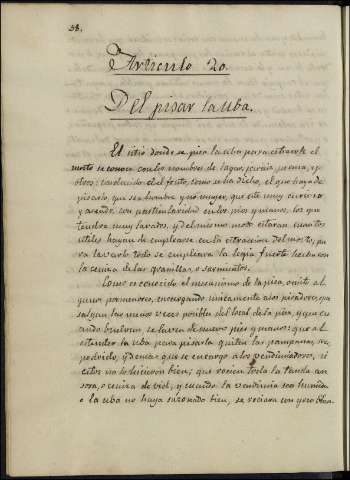 38.
Articulo 20.
Del pisar la uba.
El sitio donde se pisa la uba para extraerle el
mosto se conoce con los nombres de lagar,
del fruto, como se ha dicho, el que haya de
pisarlo, que sea hombre y no muger, que este muy curioso
y aseado, con particularidad en los pies y manos, los que
tendra muy lavados, y del mismo modo estaran cuantos
utiles hayan de emplearse en la extraccion del mosto, pa
ra lavarlo todo se empleara la legia fuerte hecha con
la ceniza de las granillas o sarmientos.
Como es conocido el mecanismo de la pisa, omito al
gunos pormenores, encargando unicamente a los pisadores, que
salgan las menos veces posibles del local de la pisa, y que cu
ando vuelvan se laven de nuevo pies y manos: que al
estender la uba para pisarla quiten las pampanas, uva
podrida, y demas que se encargo a los vendimiadores, si
estos no lo hicieron bien; que rocien toda la tanda con
o ceniza de vid, y cuando la vendimia sea humeda
o la uba no haya sazonado bien, se rociara con yeso